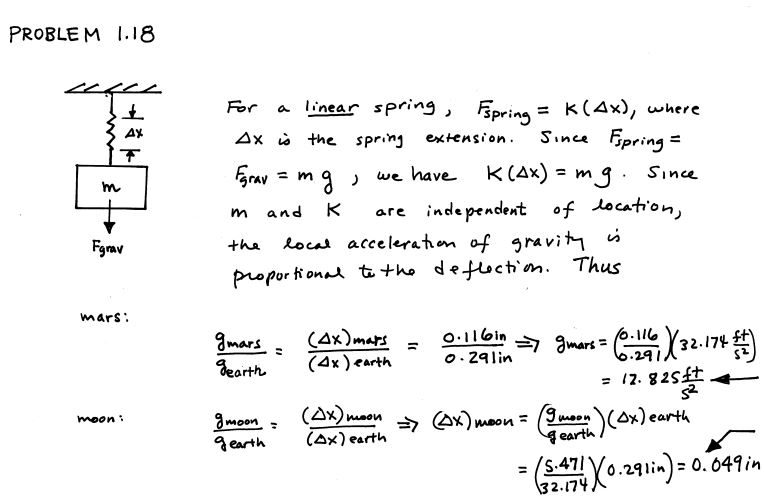 PROBLEM 1.18
Δx
m
Fgrav
For a linear spring, Fspring = K(Δx), where
Δx is the spring extension. Since Fspring =
Fgrav = mg, we have K(Δx) = mg. Since
m and K are independent of location,
the local acceleration of gravity is
proportional to the deflection. Thus
mars:
gmars/gearth = (Δx)mars/(Δx)earth = 0.116in/0.291in ⇒ gmars = (0.116/0.291)(32.174 ft/s²)
= 12.825 ft/s²
moon:
gmoon/gearth = (Δx)moon/(Δx)earth ⇒ (Δx)moon = (gmoon/gearth)(Δx)earth
= (5.471/32.174)(0.291in) = 0.049in